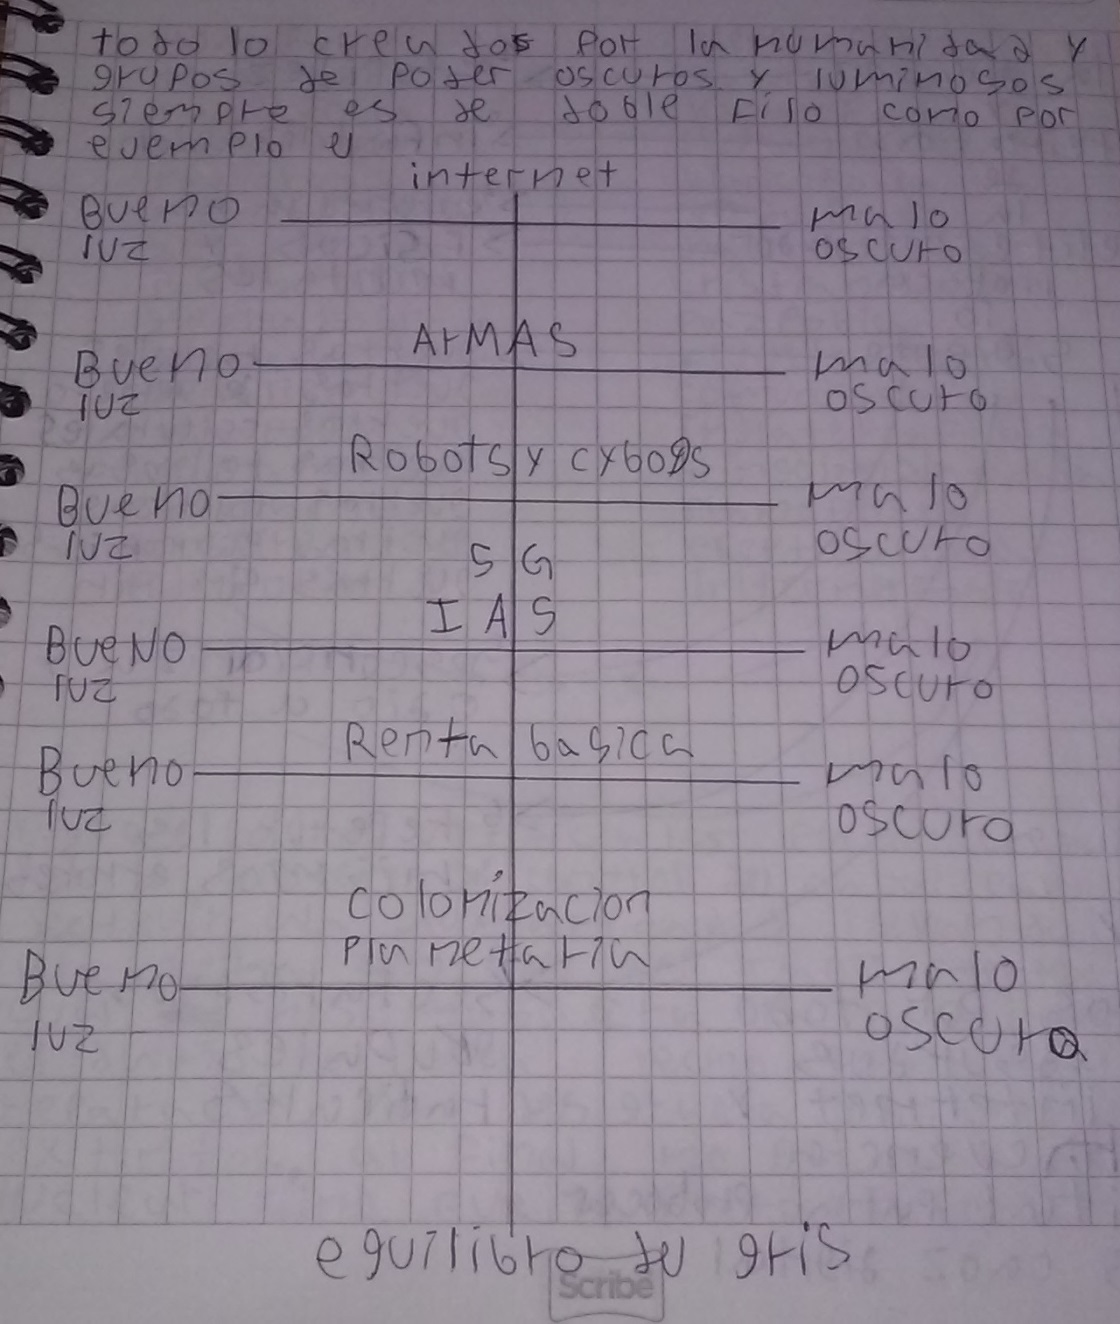 todo lo creados por la humanidad y
grupos de poder oscuros y luminosos
siempre es de doble filo como por
evemplo el
internet
Bueno malo
luz oscuro
ArMAS
Bueno malo
luz oscuro
Robots y cybogs
Bueno malo
luz oscuro
5 G
I A S
BueNO malo
luz oscuro
Renta basica
Bueno malo
luz oscuro
colonizacion
planetaria
Bueno malo
luz oscuro
equilibro de gris
Scribe